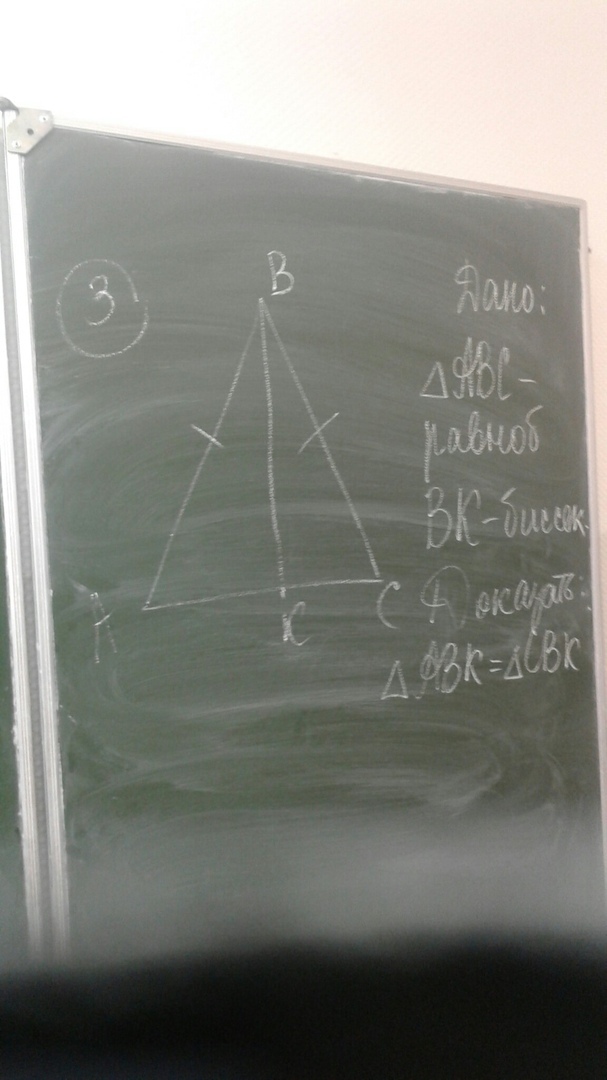 3
B
A
K
C
Дано:
△ABC-
равноб
BK-биссек.
Доказать:
△ABK=△CBK